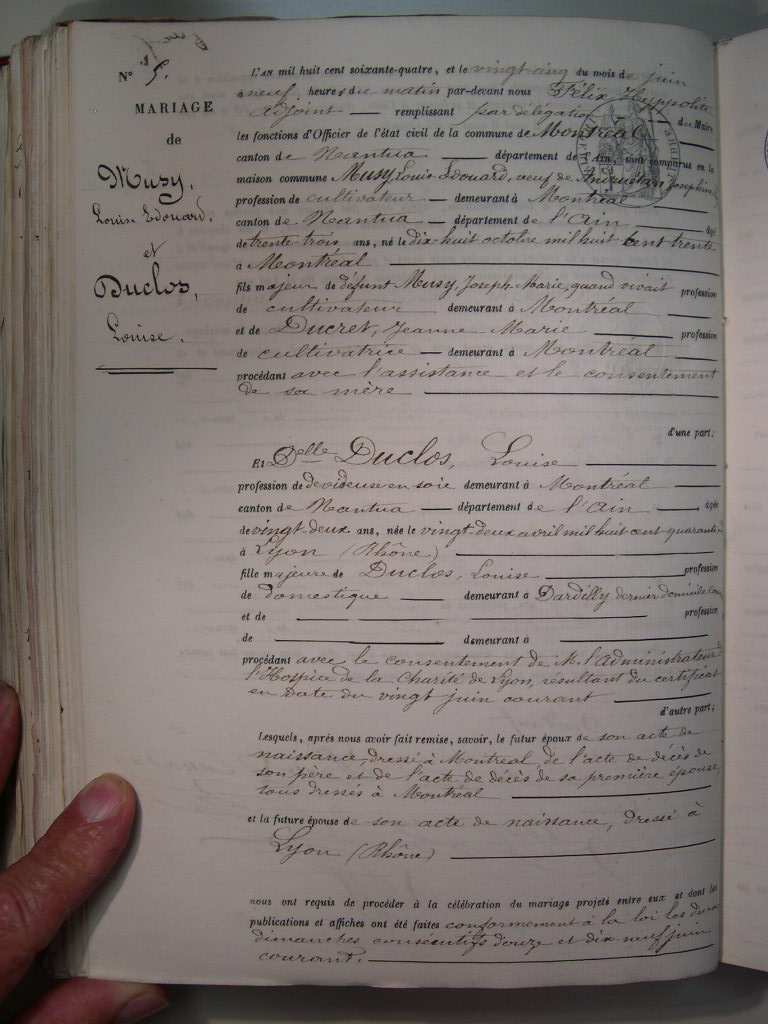 N° 5.
MARIAGE
de
Musy,
Louis Edouard.
et
Duclos,
Louise.
L'AN mil huit cent soixante-quatre, et le vingt cinq du mois de juin
à neuf heures du matin par-devant nous Félix Hyppolite
adjoint remplissant par délégation du Maire
les fonctions d'Officier de l'état civil de la commune de Montréal
canton de Nantua département de l'Ain, sont comparus en la
maison commune Musy, Louis Edouard, veuf de Joséphine
profession de cultivateur demeurant à Montréal
canton de Nantua département de l'Ain âgé
de trente-trois ans, né le dix huit octobre mil huit cent trente
à Montréal
fils majeur de défunt Musy, Joseph Marie, quand vivait profession
de cultivateur demeurant à Montréal
et de Ducret, Jeanne Marie profession
de cultivatrice demeurant à Montréal
procédant avec l'assistance et le consentement
de sa mère
d'une part;
Et Delle Duclos, Louise
profession de dévideuse en soie demeurant à Montréal
canton de Nantua département de l'Ain âgée
de vingt-deux ans, née le vingt deux avril mil huit cent quarante
à Lyon (Rhône)
fille majeure de Duclos, Louise profession
de domestique demeurant à Dardilly dernier domicile
et de profession
de demeurant à
procédant avec le consentement de M. l'administrateur d
l'Hospice de la Charité de Lyon, résultant du certificat
en date du vingt juin courant
d'autre part;
Lesquels, après nous avoir fait remise, savoir, le futur époux de son acte de
naissance, dressé à Montréal, de l'acte de décès de
son père et de l'acte de décès de sa première épouse,
tous dressés à Montréal
et la future épouse de son acte de naissance, dressé à
Lyon (Rhône)
nous ont requis de procéder à la célébration du mariage projeté entre eux et dont les
publications et affiches ont été faites conformément à la loi les deux
dimanches consécutifs douze et dix neuf juin
courant.